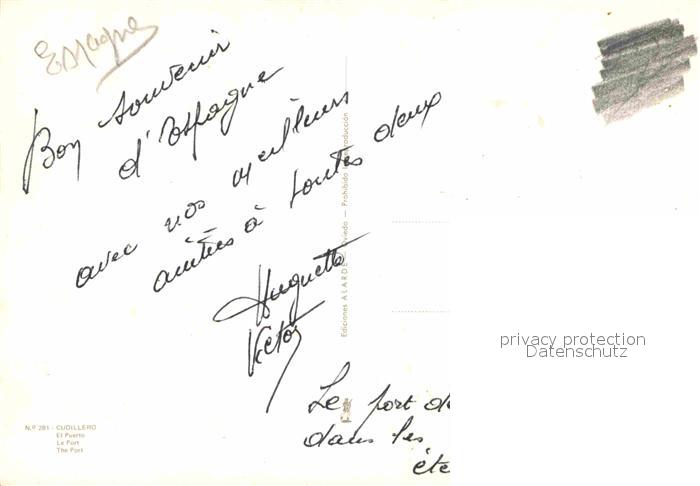 Espagne
Bon souvenir
d'Espagne
avec nos meilleurs
amitiés à toutes deux
Huguette
Victor
Le port de
dans les
éte
Nº 281 - CUDILLERO
El Puerto
Le Port
The Port
Ediciones ALARDE - Oviedo - Prohibida la reproducción
privacy protection
Datenschutz